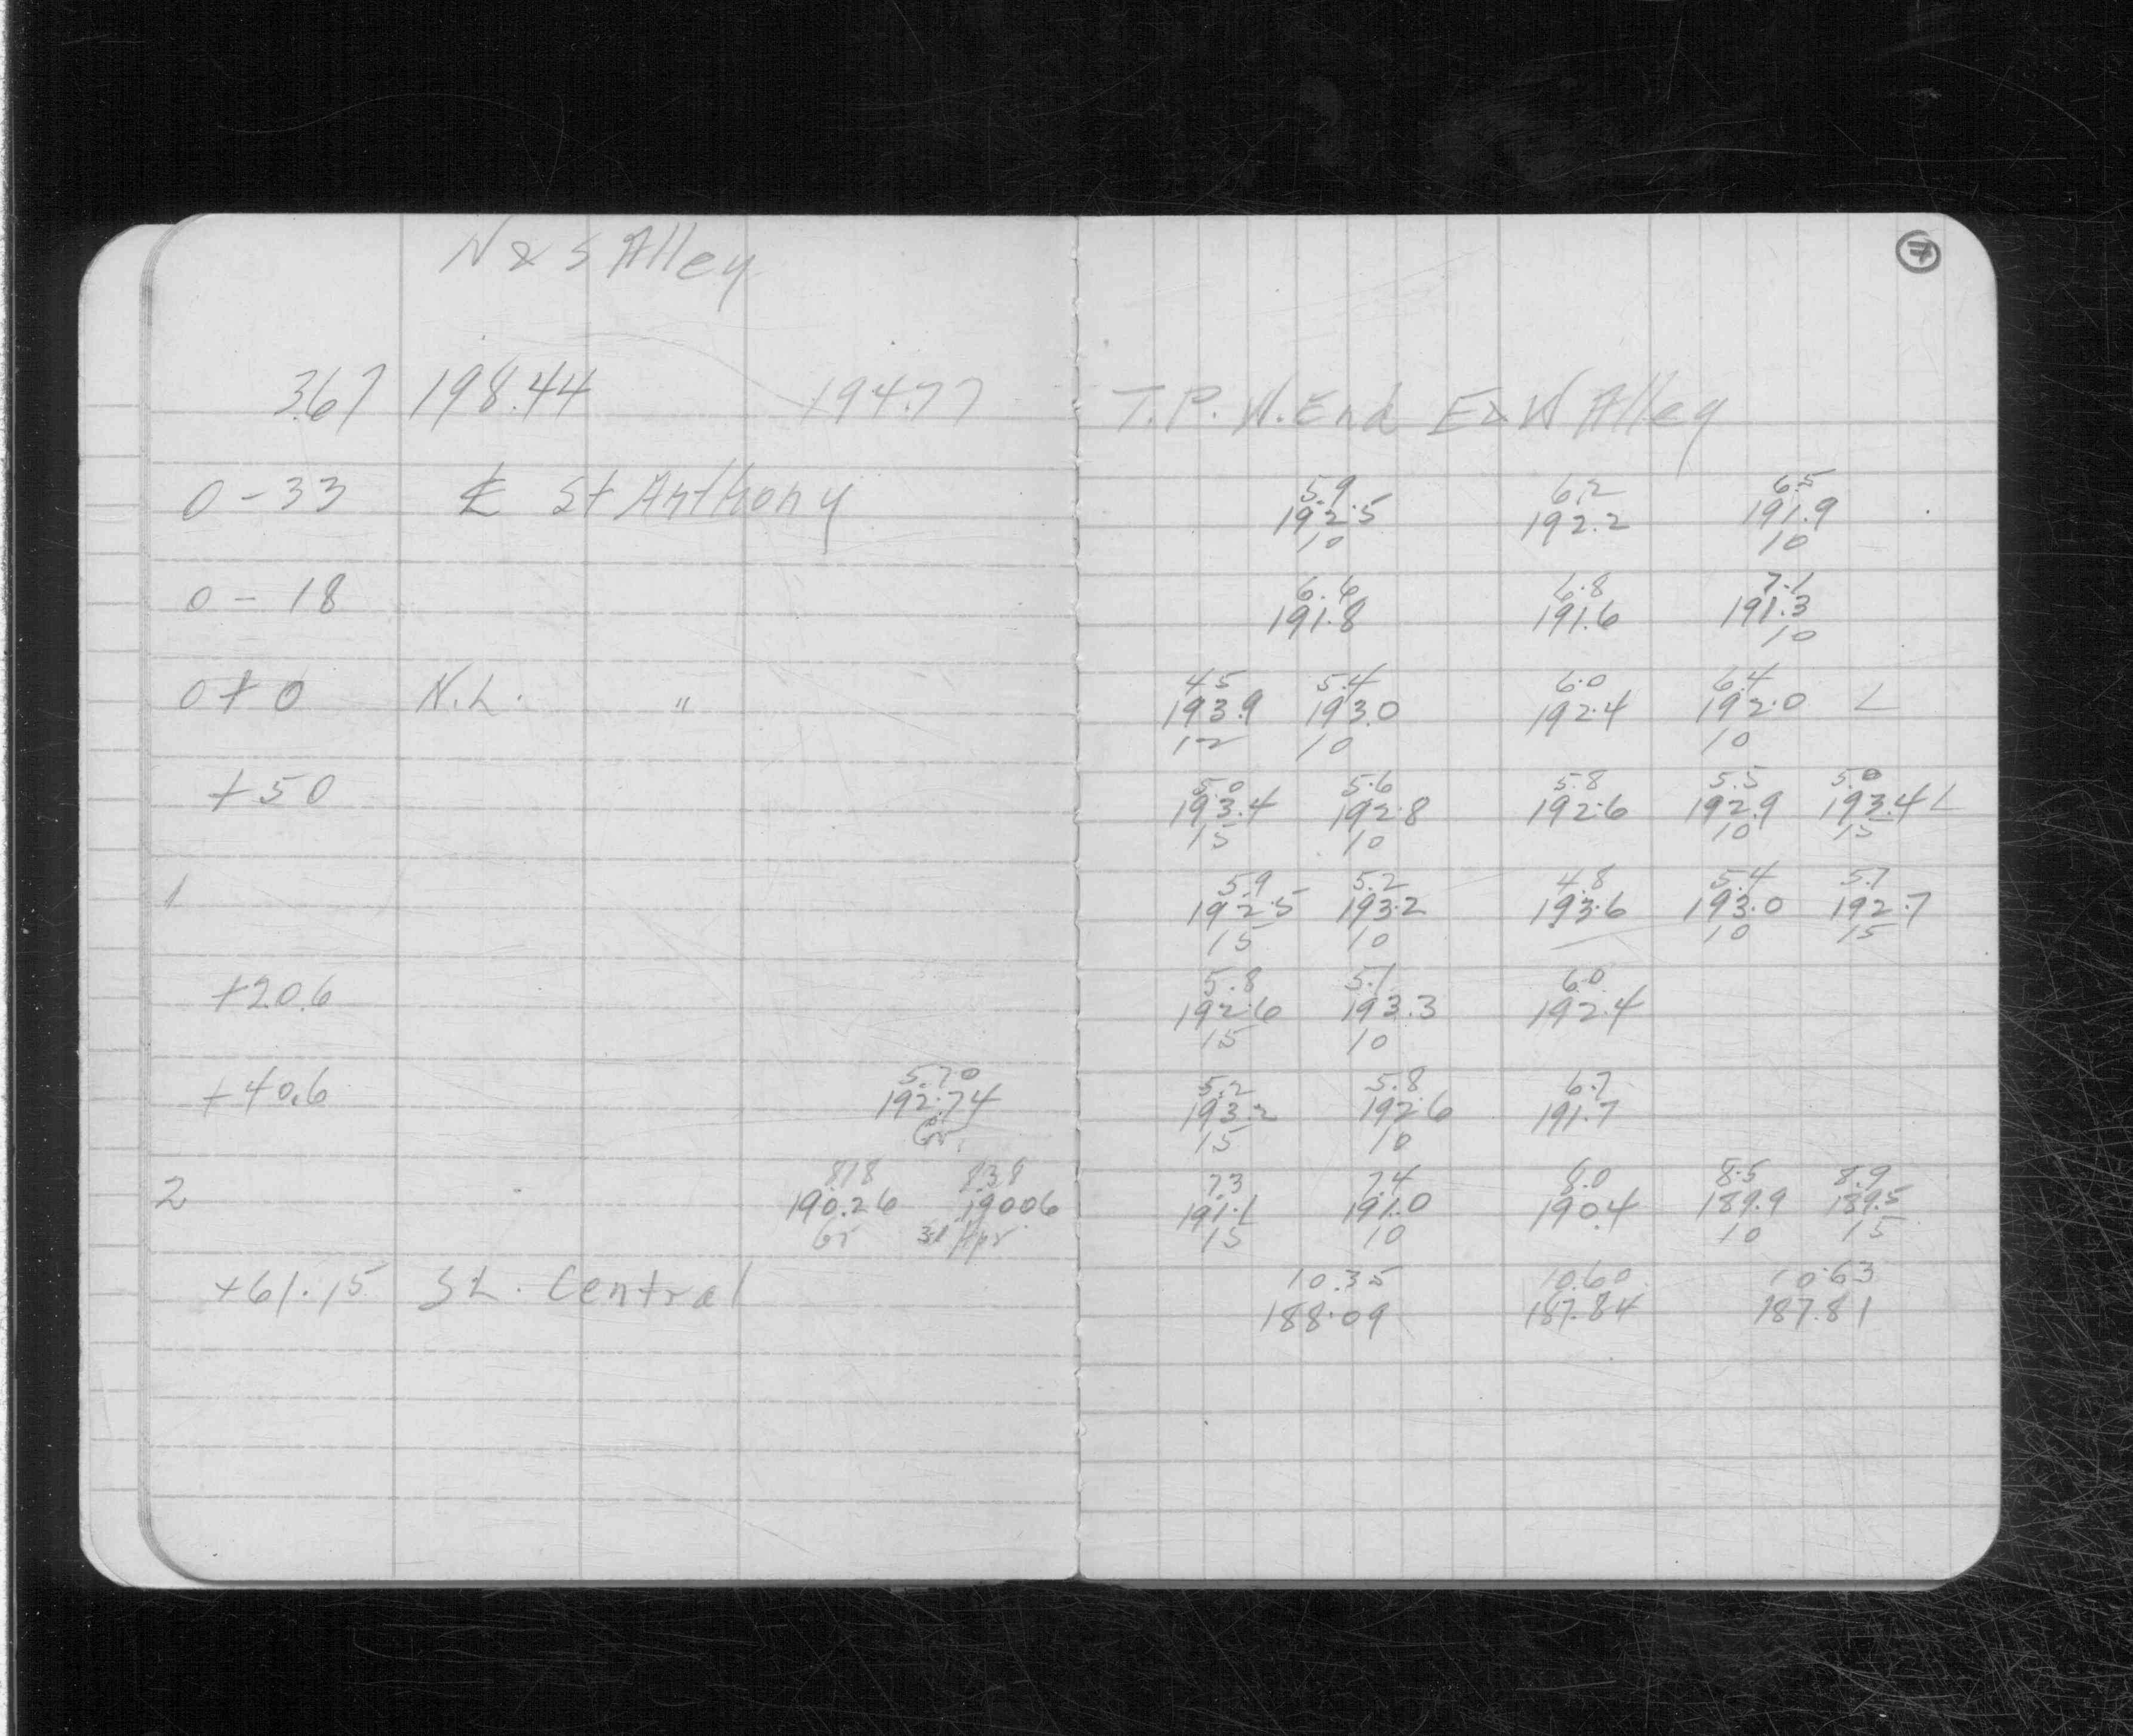 N & S Alley
7
3.67 198.44 194.77 T.P. W. End E & W Alley
5.9 6.2 6.5
0 - 33 ℄ St Anthony 192.5 192.2 191.9
10 10
6.6 6.8 7.1
0 - 18 191.8 191.6 191.3
10
4.5 5.4 6.0 6.4
0 + 0 N.L. " 193.9 193.0 192.4 192.0 L
12 10 10
5.0 5.6 5.8 5.5 5.0
+50 193.4 192.8 192.6 192.9 193.4 L
15 10 10 15
5.9 5.2 4.8 5.4 5.7
1 192.5 193.2 193.6 193.0 192.7
15 10 10 15
5.8 5.1 6.0
+20.6 192.6 193.3 192.4
15 10
5.70 5.2 5.8 6.7
+40.6 192.74 193.2 192.6 191.7
Gr. 15 10
8.18 8.38 7.3 7.4 8.0 8.5 8.9
2 190.26 190.06 191.1 191.0 190.4 189.9 189.5
Gr Apr. 15 10 10 15
10.35 10.60 10.63
+61.15 S.L. Central 188.09 187.84 187.81